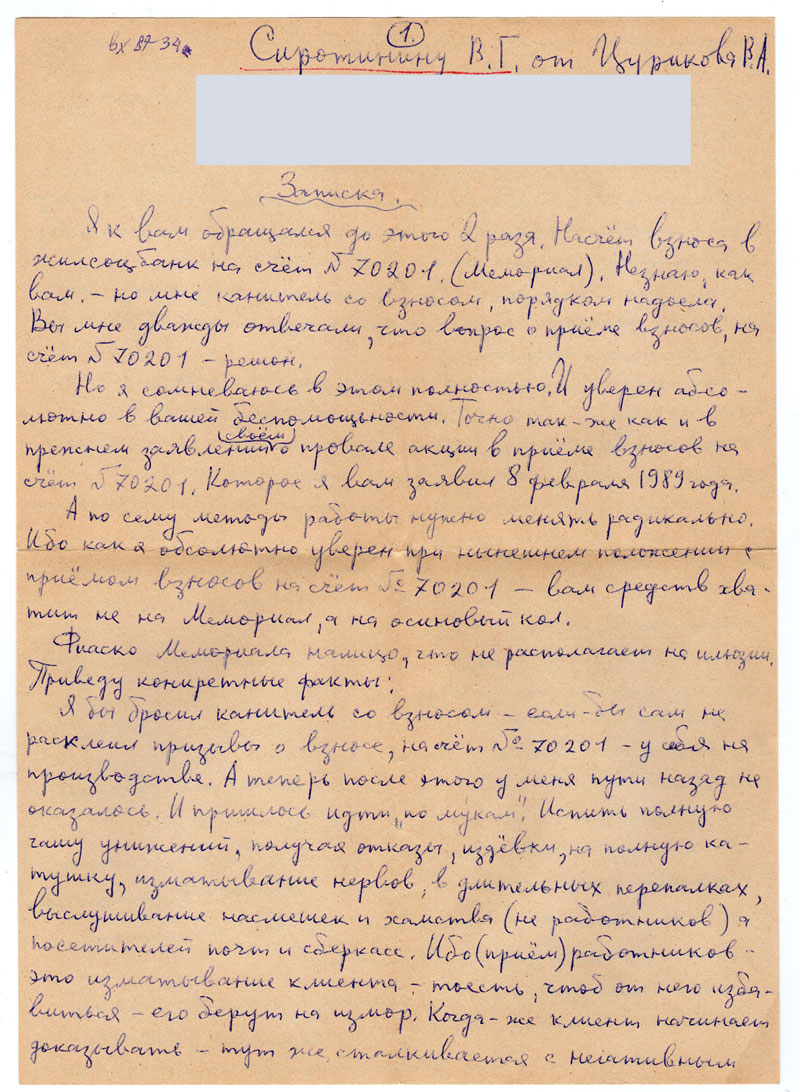 вх 87-34
1.
Сиротинину В.Г. от Цурикова В.А.
Записка.
Я к вам обращался до этого 2 раза. Насчёт взноса в
жилсоцбанк на счёт № 70201. (Мемориал). Незнаю, как
вам. – но мне канитель со взносом, порядком надоела.
Вы мне дважды отвечали, что вопрос о приёме взносов, на
счёт № 70201 – решон.
Но я сомневаюсь в этом полностью. И уверен абсо-
лютно в вашей беспомощьности. Точно так-же как и в
прежнем (своём) заявлении о провале акции в приёме взносов на
счёт № 70201. Которое я вам заявил 8 февраля 1989 года.
А по сему методы работы нужно менять радикально.
Ибо как я обсолютно уверен при нынешнем положении с
приёмом взносов на счёт № 70201 – вам средств хва-
тит не на Мемориал, а на осиновый кол.
Фиаско Мемориала налицо, что не располагает на илюзии.
Приведу конкретные факты:
Я бы бросил канитель со взносом – если-бы сам не
расклеил призывы о взносе, на счёт № 70201 – у себя на
производстве. А теперь после этого у меня пути назад не
оказалось. И пришлось идти „по мукам". Испить полную
чашу унижений, получая отказы, издёвки, на полную ка-
тушку, изматывание нервов, в длительных перепалках,
выслушивание насмешек и хамства (не работников) а
посетителей почт и сберкасс. Ибо (приём) работников –
это изматывание клиента – тоесть, чтоб от него избa-
виться – его берут на измор. Когда-же клиент начинает
доказывать – тут же, сталкивается с негативным